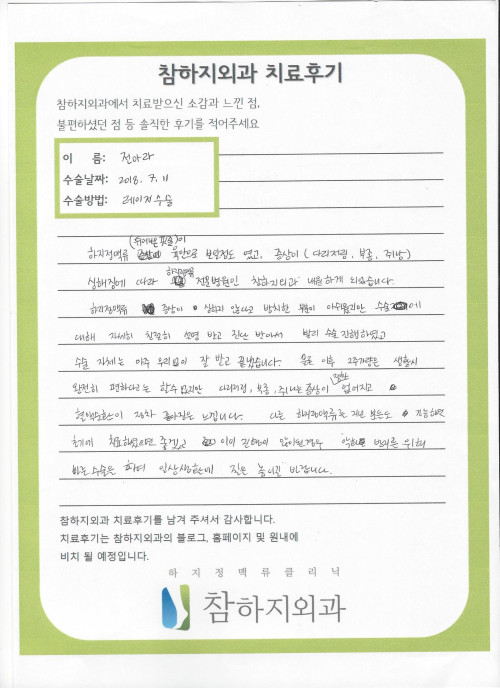 참하지외과 치료후기
참하지외과에서 치료받으신 소감과 느낀 점,
불편하셨던 점 등 솔직한 후기를 적어주세요
이 름: 전아라
수술날짜: 2018. 7. 11
수술방법: 레이저수술
(튀어나온 핏줄)이
하지정맥류 육안으로 보일정도 였고, 증상이 (다리저림, 부종, 쥐남)
심해짐에 따라 하지정맥류 전문병원인 참하지외과 내원하게 되었습니다.
하지정맥류 증상이 심하지 않다고 방치한 아쉬웠지만 수술에
대해 자세히 친절히 설명 받고 진단 받아서 빨리 수술 진행하였고
수술 자체는 아주 무리없이 잘 받고 끝냈습니다. 수술 이후 2주가량은 생활시
완전히 편하다고는 할수 없지만 다리저림, 부종, 쥐나는 증상이 점차 없어지고
혈액순환이 점차 좋아짐을 느낍니다. 하지정맥류는 지닌 분들도 가능하면
초기에 치료하셨으면 좋겠고 이미 진행이 많이된경우 악화 방지를 위해
빠른 수술을 하여 일상생활에 질을 높이길 바랍니다.
참하지외과 치료후기를 남겨 주셔서 감사합니다.
치료후기는 참하지외과의 블로그, 홈페이지 및 원내에
비치 될 예정입니다.
하 지 정 맥 류 클 리 닉
참하지외과